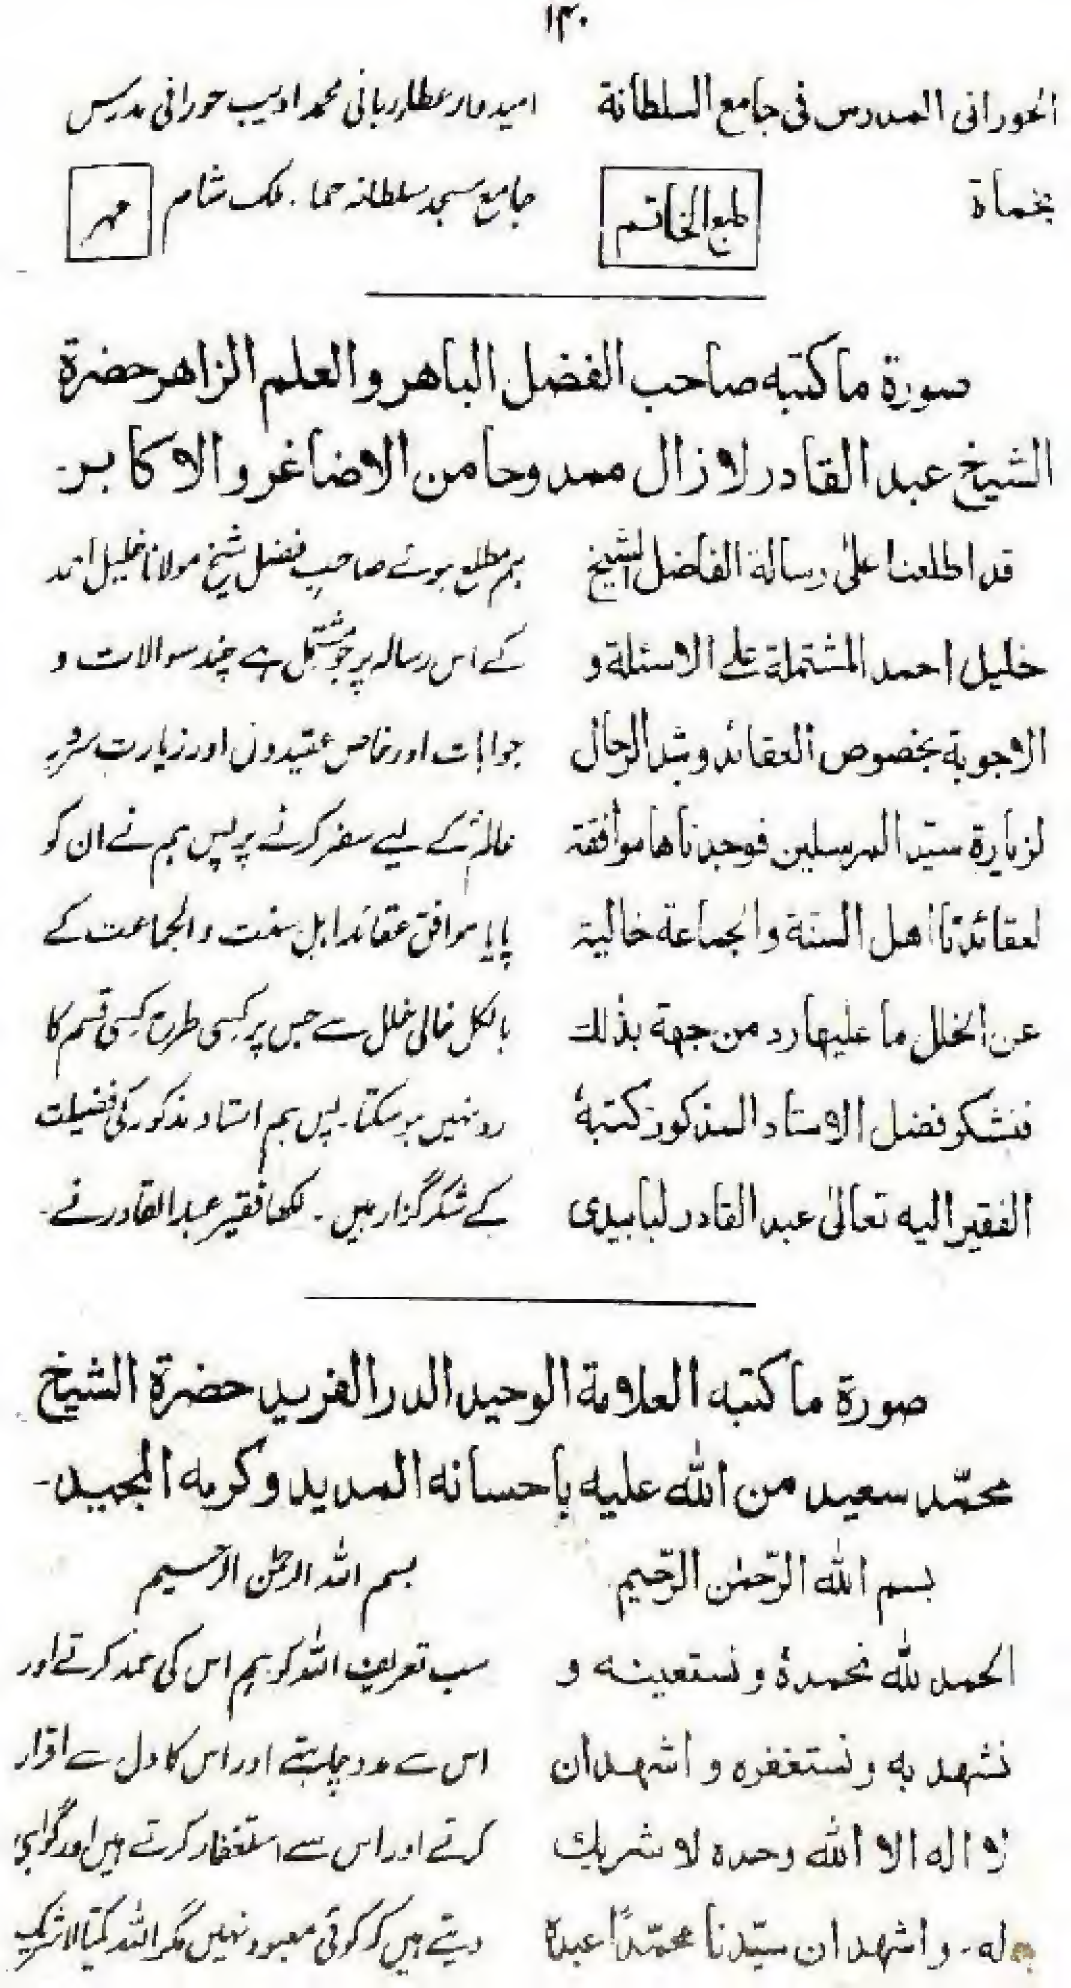 ۱۴۰
الحورانی المدرس فی جامع السلطانة
بخماة
طبع الخاتم
امیدوار عطار ربانی محمد ادیب حورانی مدرس
جامع مسجد سلطانہ حما۔ ملک شام
مہر
صورة ما کتبه صاحب الفضل الباهر والعلم الزاهر حضرة
الشیخ عبد القادر لا زال ممدوحا من الاضاغر والاکابر۔
قد اطلعنا علیٰ رسالة الفاضل الشیخ
خلیل احمد المشتملة علی الاسئلة و
الاجوبة بخصوص العقائد وشد الرحال
لزیارة سیّد المرسلین فوجدناها موافقة
لعقائدنا اهل السنة والجماعة خالیة
عن الخلل ما علیها رد من جهة بذٰلك
فنشکر فضل الاستاد المذکور کتبهٗ
الفقیر الیه تعالیٰ عبد القادر لبابیدی
ہم مطلع ہوئے صاحبِ فضل شیخ مولانا خلیل احمد
کے اس رسالہ پر جو مشتمل ہے چند سوالات و
جوابات اور خاص عقیدوں اور زیارت سرورِ
عالمؐ کے لیے سفر کرنے پر پس ہم نے ان کو
پایا موافق عقائد اہل سنت والجماعت کے
بالکل خالی خلل سے جس پر کسی طرح کسی قسم کا
رد نہیں ہو سکتا۔ پس ہم استاد مذکور کی فضیلت
کے شکر گزار ہیں۔ لکھا فقیر عبد القادر نے۔
صورة ما کتبه العلامة الوحید الدر الفرید حضرة الشیخ
محمّد سعید من اللّٰه علیه باحسانه المدید وکرمه المجید۔
بسم اللّٰه الرّحمٰن الرّحیم
الحمد للّٰه نحمدهٗ ونستعینه و
نشهد به ونستغفره واشهد ان
لا اله الا اللّٰه وحده لا شریك
له۔ واشهد ان سیّدنا محمّدًا عبدہ
بسم اللہ الرحمٰن الرحیم
سب تعریف اللہ کو ہم اس کی حمد کرتے اور
اس سے مدد چاہتے اور اس کا دل سے اقرار
کرتے اور اس سے استغفار کرتے ہیں اور گواہی
دیتے ہیں کہ کوئی معبود نہیں مگر اللہ یکتا لاشریک